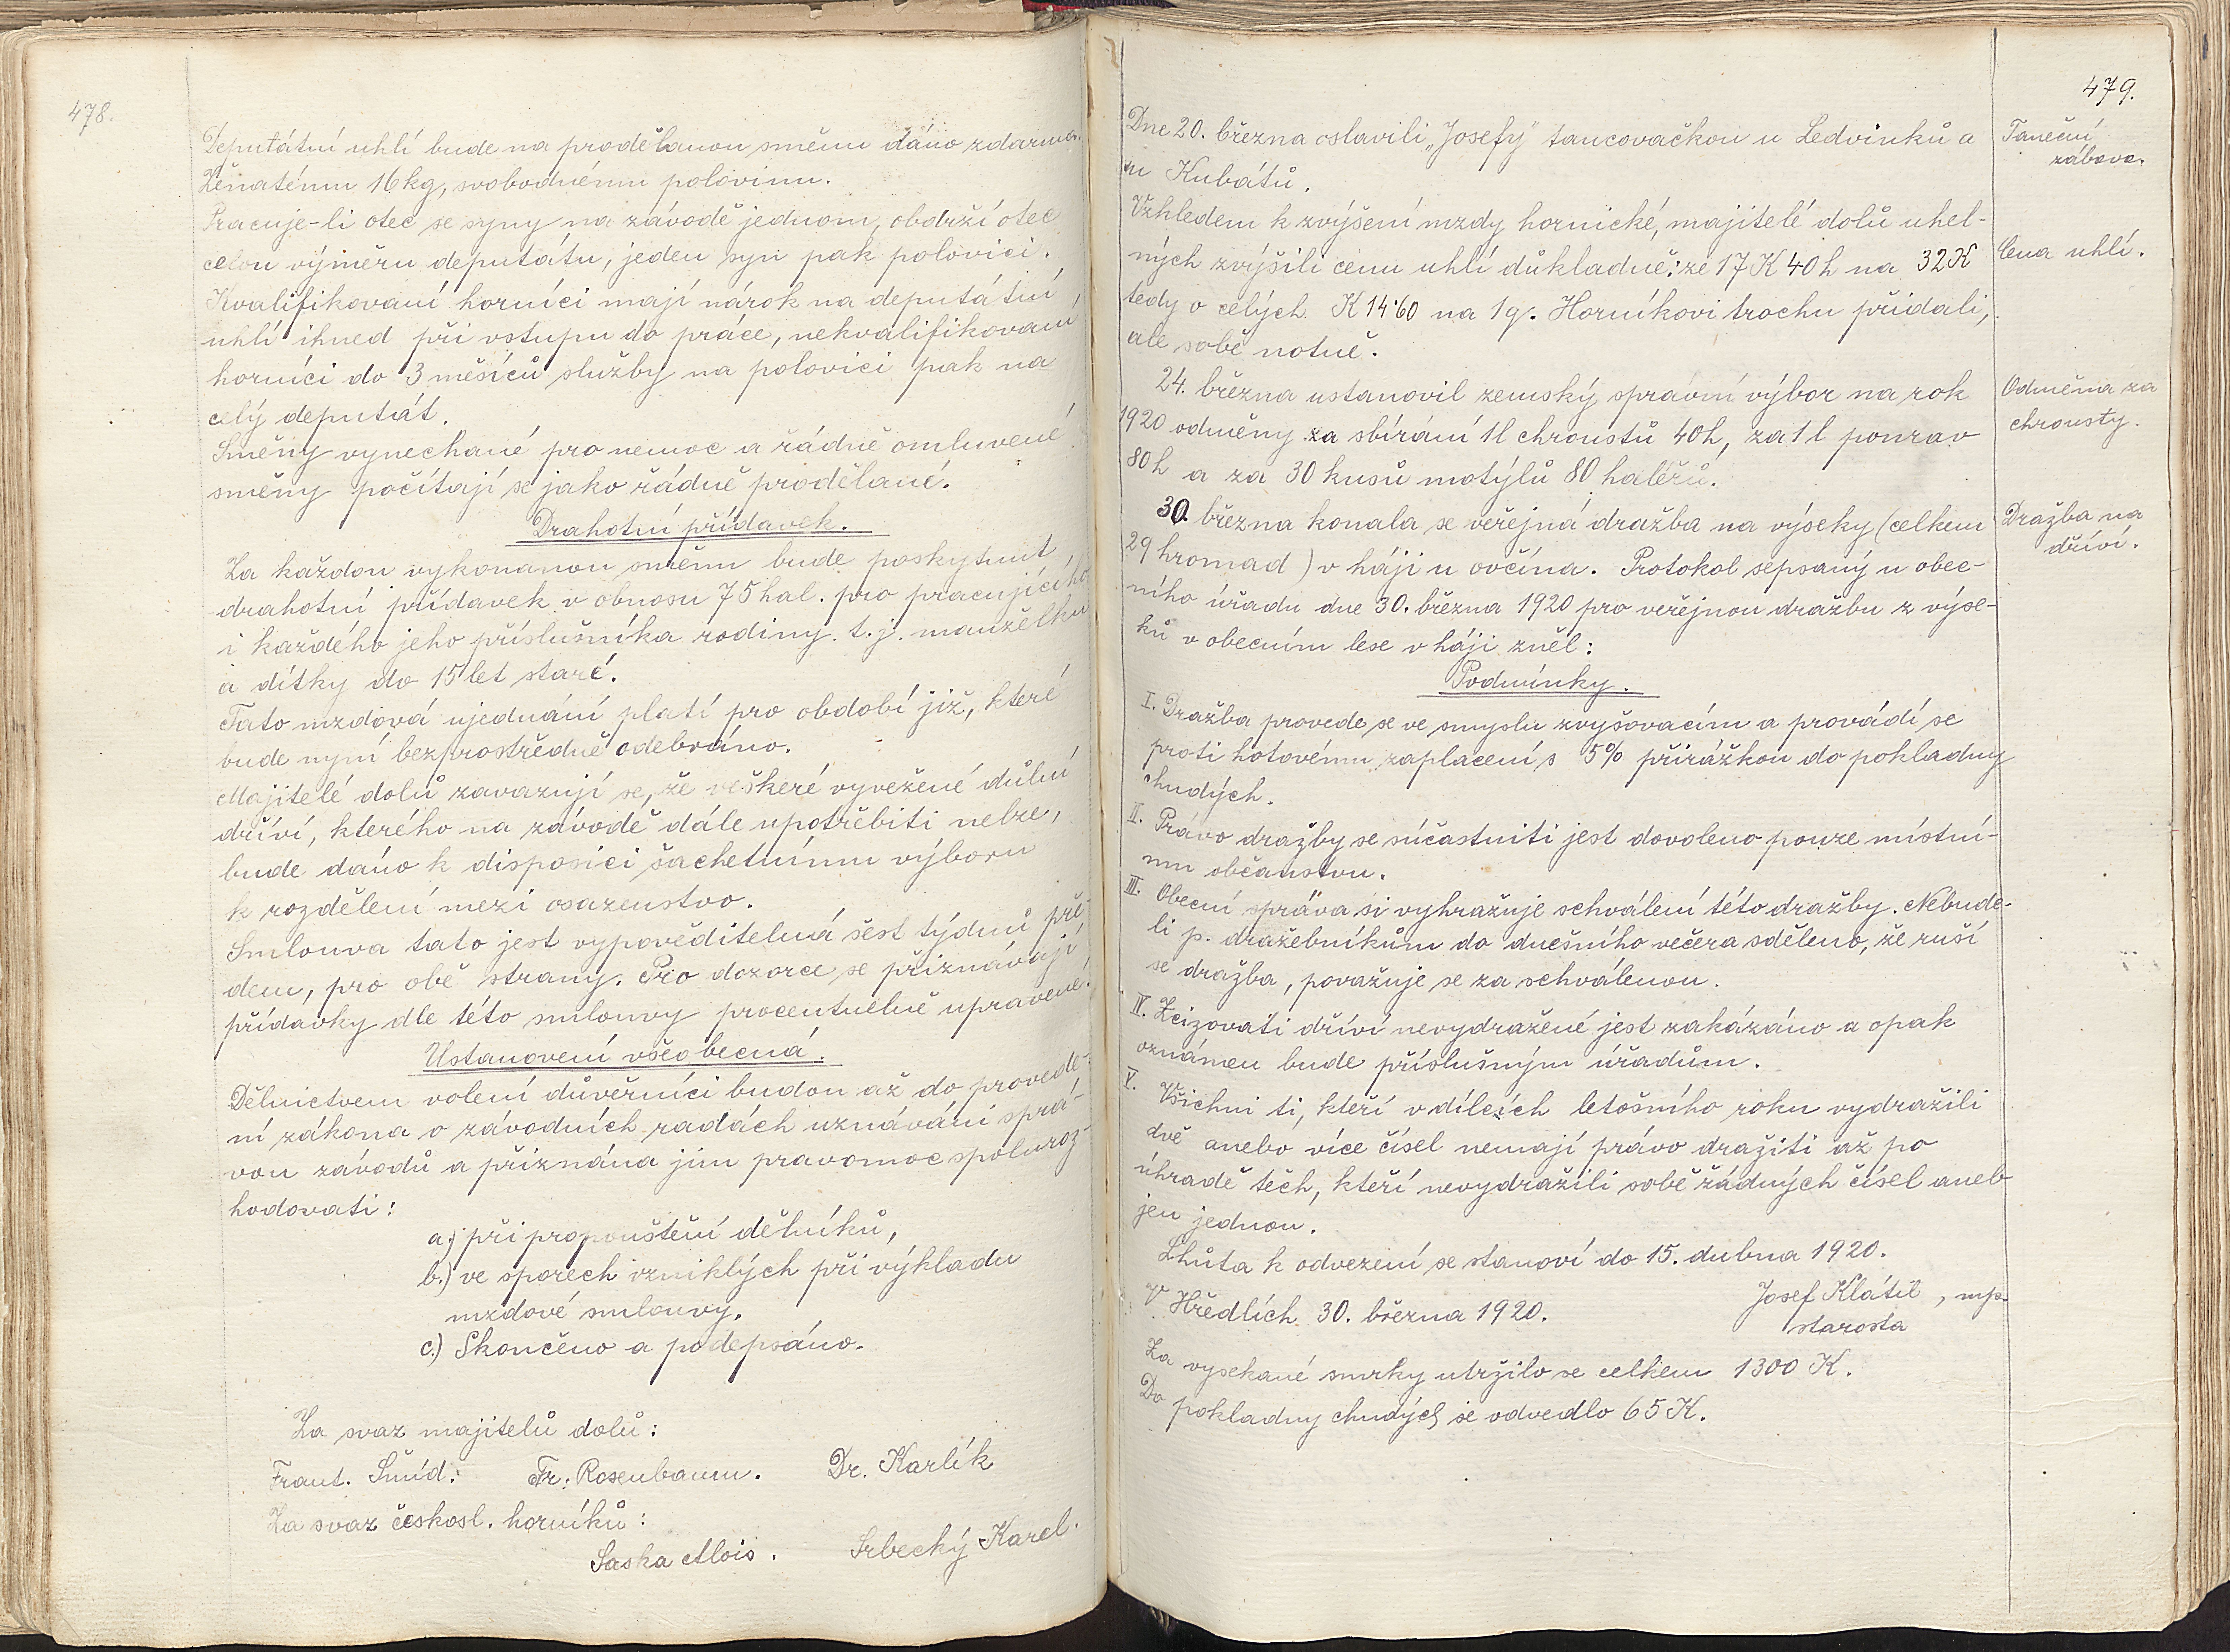 478.
Deputátní uhlí bude na prodělanou směnu dáno zdarma.
Ženatému 16 kg, svobodnému polovinu.
Pracuje-li otec se syny na závodě jednom, obdrží otec
celou výměru deputátu, jeden syn pak polovici.
Kvalifikovaní horníci mají nárok na deputátní
uhlí ihned při vstupu do práce, nekvalifikovaní
horníci do 3 měsíců služby na polovici pak na
celý deputát.
Směny vynechané pro nemoc a řádně omluvené
směny počítají se jako řádně prodělané.
Drahotní přídavek.
Za každou vykonanou směnu bude poskytnut
drahotní přídavek v obnosu 75 hal. pro pracujícího
i každého jeho příslušníka rodiny t. j. manželku
a dítky do 15 let staré.
Tato mzdová ujednání platí pro období již, které
bude nyní bezprostředně odebráno.
Majitelé dolů zavazují se, že veškeré vyvežené důlní
dříví, kterého na závodě dále upotřebiti nelze,
bude dáno k disposici šachetnímu výboru
k rozdělení mezi osazenstvo.
Smlouva tato jest vypověditelná šest týdnů pře-
dem, pro obě strany. Pro dozorce se přiznávají
přídavky dle této smlouvy procentuelně upravené.
Ustanovení všeobecná.
Dělnictvem volení důvěrníci budou až do provede-
ní zákona o závodních radách uznáváni sprá-
vou závodů a přiznána jim pravomoc spoluroz-
hodovati:
a.) při propouštění dělníků,
b.) ve sporech vzniklých při výkladu
mzdové smlouvy.
c.) Skončeno a podepsáno.
Za svaz majitelů dolů:
Frant. Šmíd. Fr. Rosenbaum. Dr. Karlík
Za svaz českosl. horníků:
Saska Alois. Srbecký Karel.
479.
Dne 20. března oslavili „Josefy" tancovačkou u Ledvinků a
u Kubátů.
Taneční
zábava.
Vzhledem k zvýšení mzdy hornické, majitelé dolů uhel-
ných zvýšili cenu uhlí důkladně: ze 17 K 40 h na 32 K
tedy o celých K 14·60 na 1 q. Horníkovi trochu přidali,
ale sobě notně.
Cena uhlí.
24. března ustanovil zemský správní výbor na rok
1920 odměny za sbírání 1 l chroustů 40 h, za 1 l ponrav
80 h a za 30 kusů motýlů 80 haléřů.
Odměna za
chrousty.
30. března konala se veřejná dražba na výseky (celkem
29 hromad) v háji u ovčína. Protokol sepsaný u obec-
ního úřadu dne 30. března 1920 pro veřejnou dražbu z výse-
ků v obecním lese v háji zněl:
Dražba na
dříví.
Podmínky.
I. Dražba provede se ve smyslu zvyšovacím a provádí se
proti hotovému zaplacení s 5% přirážkou do pokladny
chudých.
II. Právo dražby se súčastniti jest dovoleno pouze místní-
mu občanstvu.
III. Obecní správa si vyhražuje schválení této dražby. Nebude-
li p. dražebníkům do dnešního večera sděleno, že ruší
se dražba, považuje se za schválenou.
IV. Zcizovati dříví nevydražené jest zakázáno a opak
oznámen bude příslušným úřadům.
V. Všichni ti, kteří v dílcích letošního roku vydražili
dvě anebo více čísel nemají právo dražiti až po
úhradě těch, kteří nevydražili sobě žádných čísel aneb
jen jednou.
Lhůta k odvezení se stanoví do 15. dubna 1920.
V Hředlích 30. března 1920. Josef Klátil, mp.
starosta
Za vysekané smrky utržilo se celkem 1300 K.
Do pokladny chudých se odvedlo 65 K.